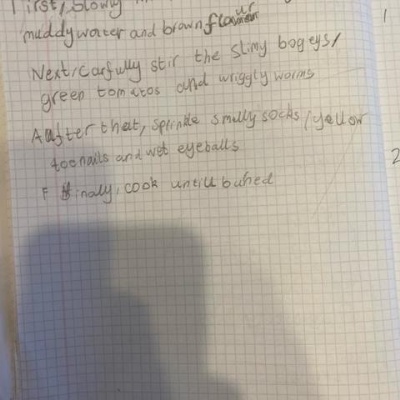 First, slowly
muddy water and brown flour
Next, carfully stir the slimy bogeys,
green tomatos and wriggly worms
Aafter that, sprinkle smelly socks, yellow
toenails and wet eyeballs
Finally, cook untill
1
2